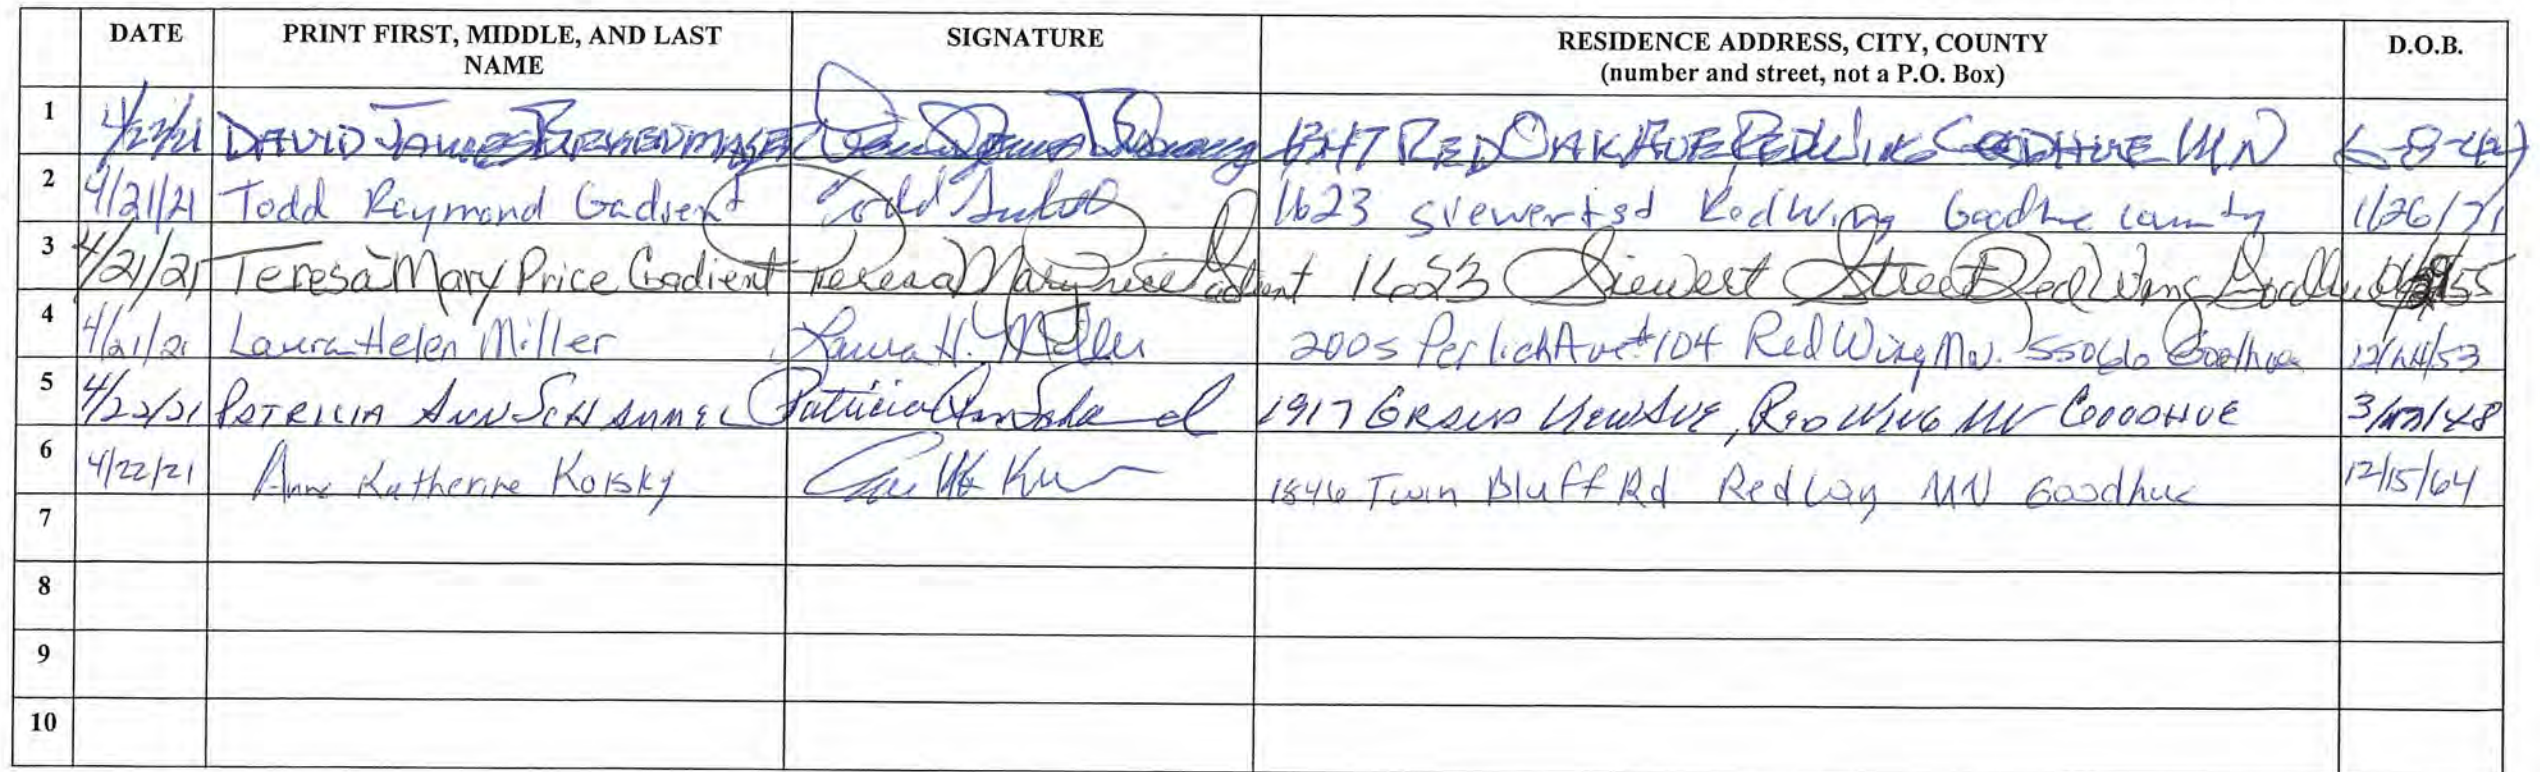 DATE PRINT FIRST, MIDDLE, AND LAST NAME SIGNATURE RESIDENCE ADDRESS, CITY, COUNTY (number and street, not a P.O. Box) D.O.B.
1 4/22/21 DAVID JAMES RED OAK AVE RED WING GOODHUE MN
2 4/21/21 Todd Raymond Gadient Todd 1623 Siewert Red Wing Goodhue county 1/26/71
3 4/21/21 Teresa Mary Price Gadient Teresa Mary Price Gadient 1623 Siewert Street Red Wing Goodhue
4 4/21/21 Laura Helen Miller Laura H. Miller 2005 Perlich Ave #104 Red Wing Mn. 55066 Goodhue
5 4/22/21 PATRICIA ANN SCHAMMEL Patricia Ann 1917 GRAND VIEW AVE, RED WING MN GOODHUE
6 4/22/21 Anne Katherine Korsky 1846 Twin Bluff Rd Red Wing MN Goodhue 12/15/64
7
8
9
10